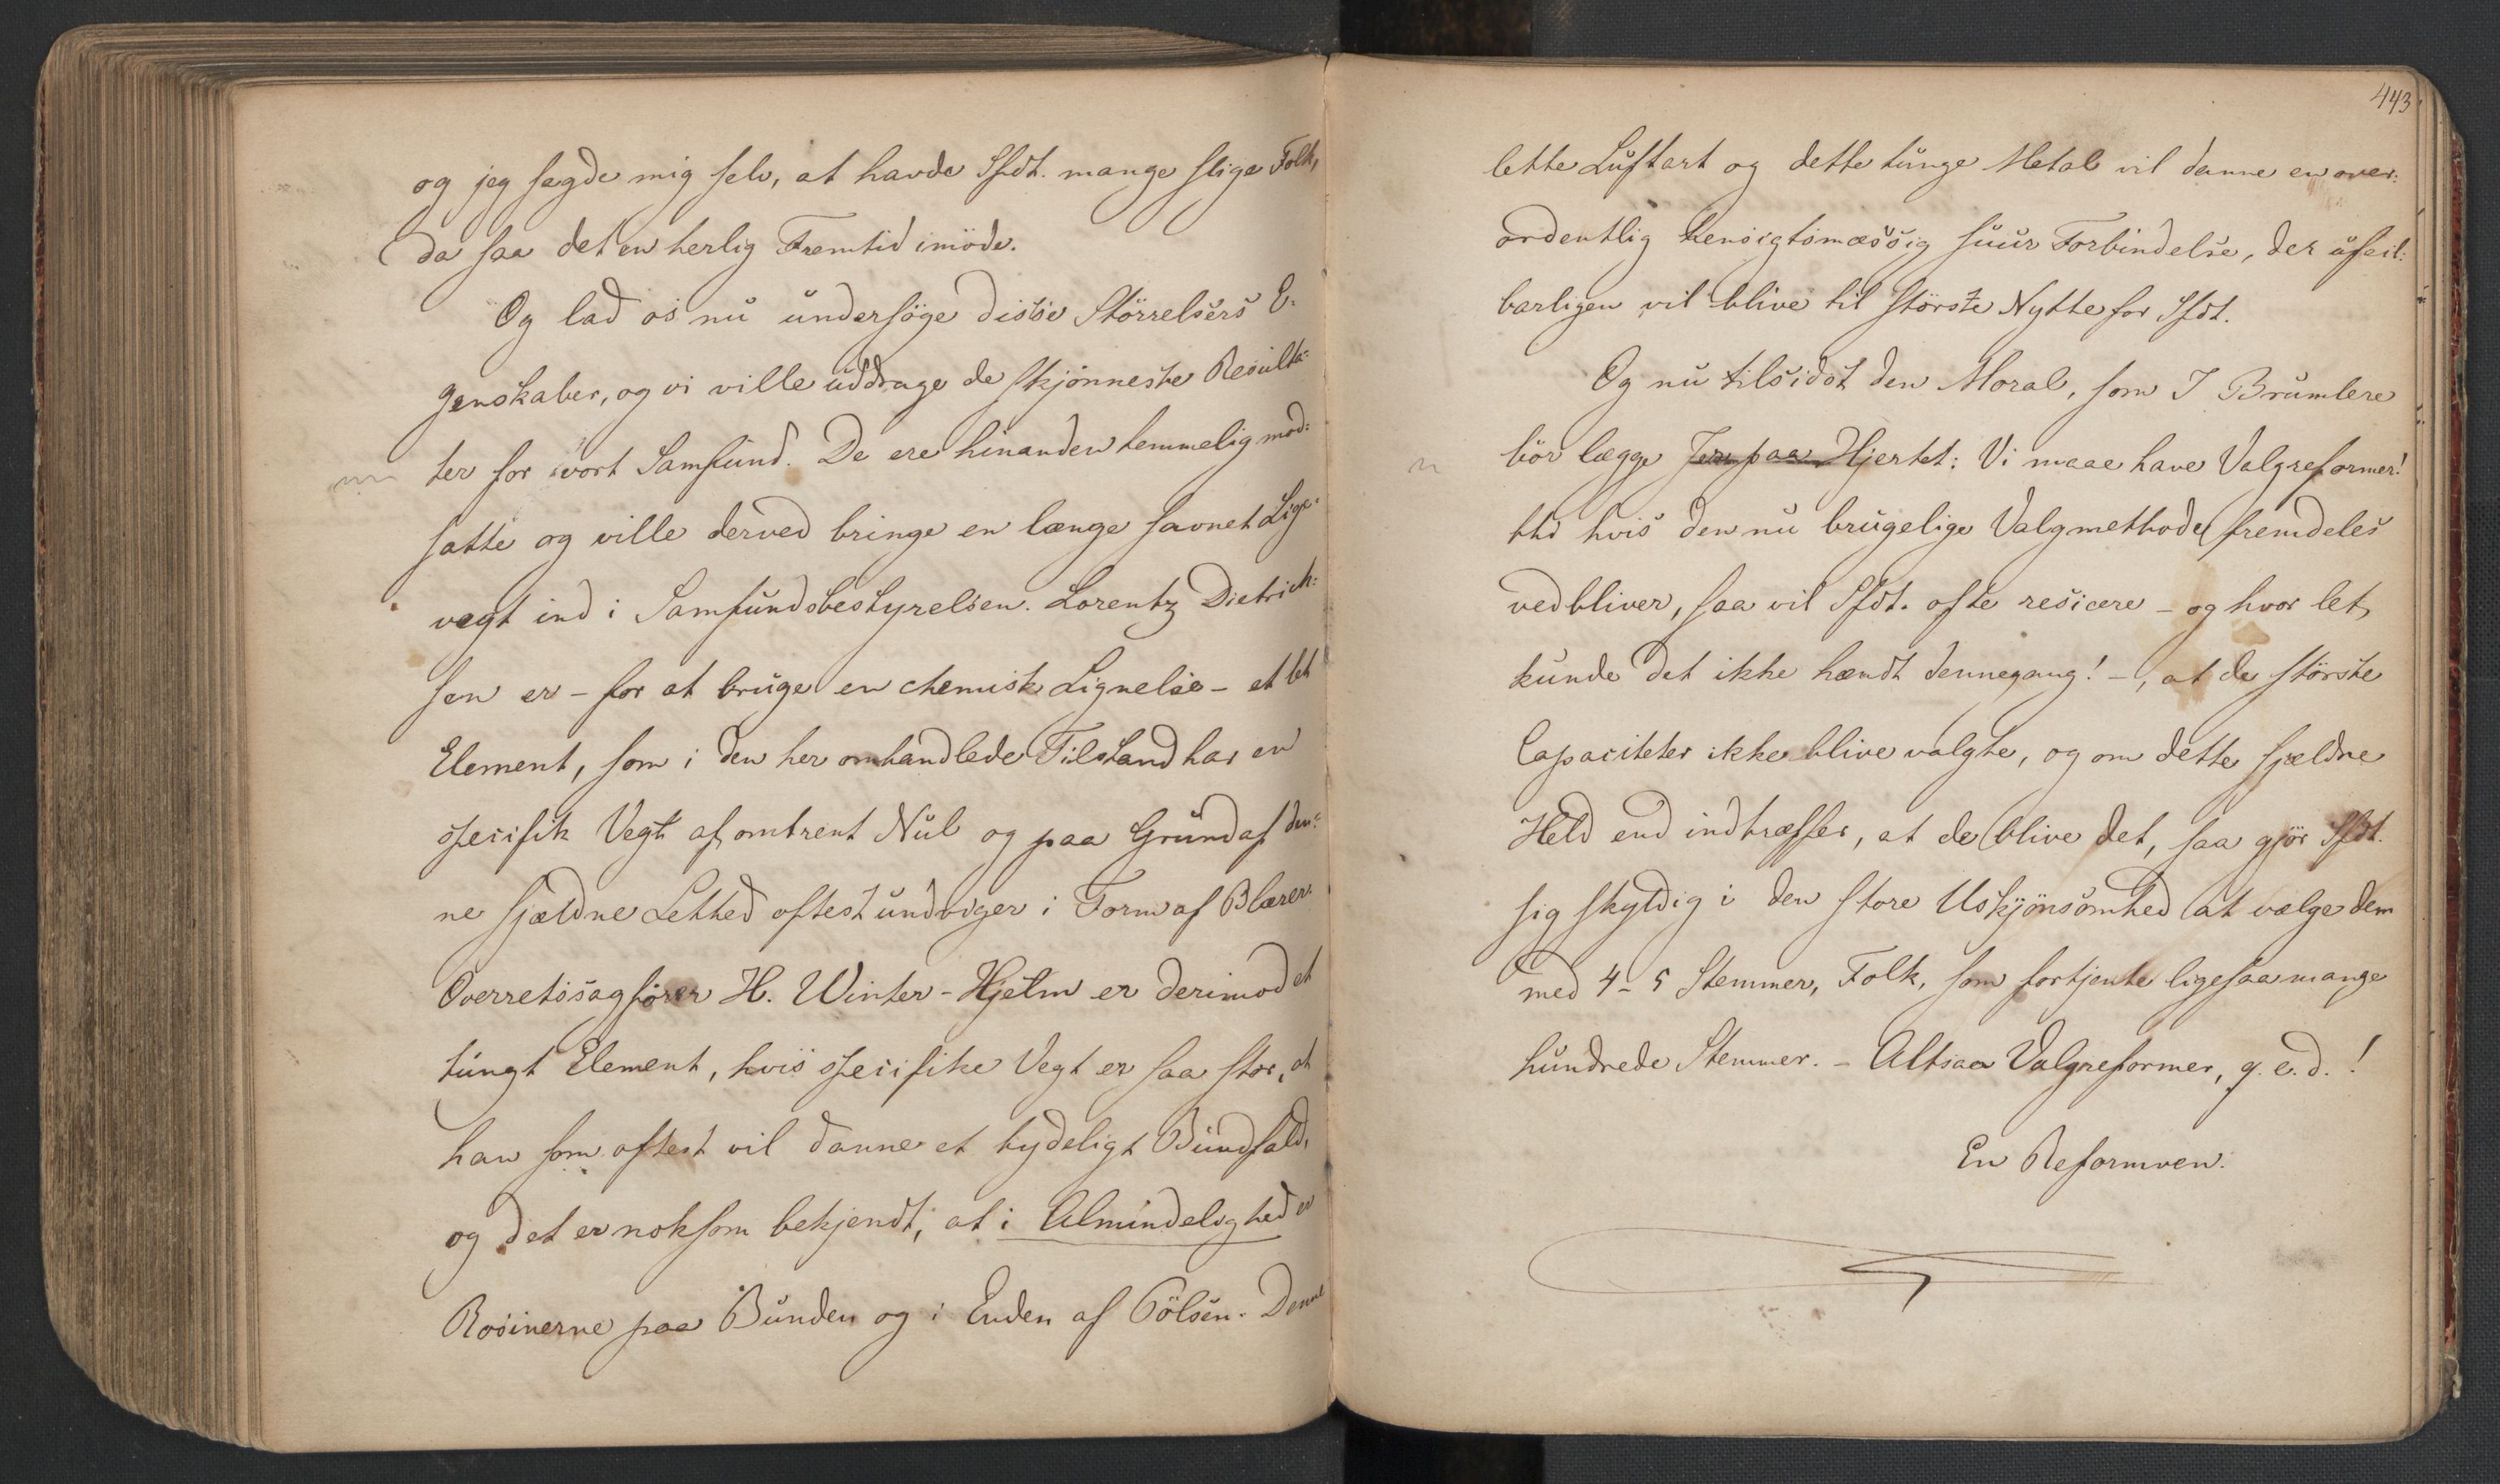 og jeg sagde mig selv, at havde Sfdt. mange slige Folk,
da saa det en herlig Fremtid imöde.
Og lad os nu undersöge disse Störrelsers E-
genskaber, og vi ville uddrage de skjönneste Resulta-
ter for vort Samfund. De ere hinanden temmelig mod-
satte og ville derved bringe en længe savnet Lige-
vegt ind i Samfundsbestyrelsen. Lorentz Dietrich-
sen er – for at bruge en chemisk Lignelse – et let
Element, som i den her omhandlede Tilstand har en
specifik Vegt af omtrent Nul og paa Grund af den-
ne sjældne Lethed oftest undviger i Form af Blærer.
Overretssagförer H. Winter-Hjelm er derimod et
tungt Element, hvis specifike Vegt er saa stor, at
han som oftest vil danne et tydeligt Bundfald,
og det er noksom bekjendt, at i Almindelighed er
Rosinerne paa Bunden og i Enden af Pölsen. Denne
443
lette Luftart og dette tunge Metal vil danne en over-
ordentlig hensigtsmæssig suur Forbindelse, der ufeil-
barligen vil blive til störste Nytte for Sfdt.
Og nu tilsidst den Moral, som I Brumlere
bör lægge Jer paa Hjertet: Vi maae have Valgreformer!
thi hvis den nu brugelige Valgmethode fremdeles
vedbliver, saa vil Sfdt. ofte resicere – og hvor let
kunde det ikke hændt dennegang! –, at de störste
Capaciteter ikke blive valgte, og om dette sjældne
Held end indtræffer, at de blive det, saa gjör Sfdt.
sig skyldig i den store Uskjönsomhed at vælge dem
med 4-5 Stemmer, Folk, som fortjente ligesaamange
hundrede Stemmer. – Altsaa Valgreformer, q. e. d.!
En Reformven.